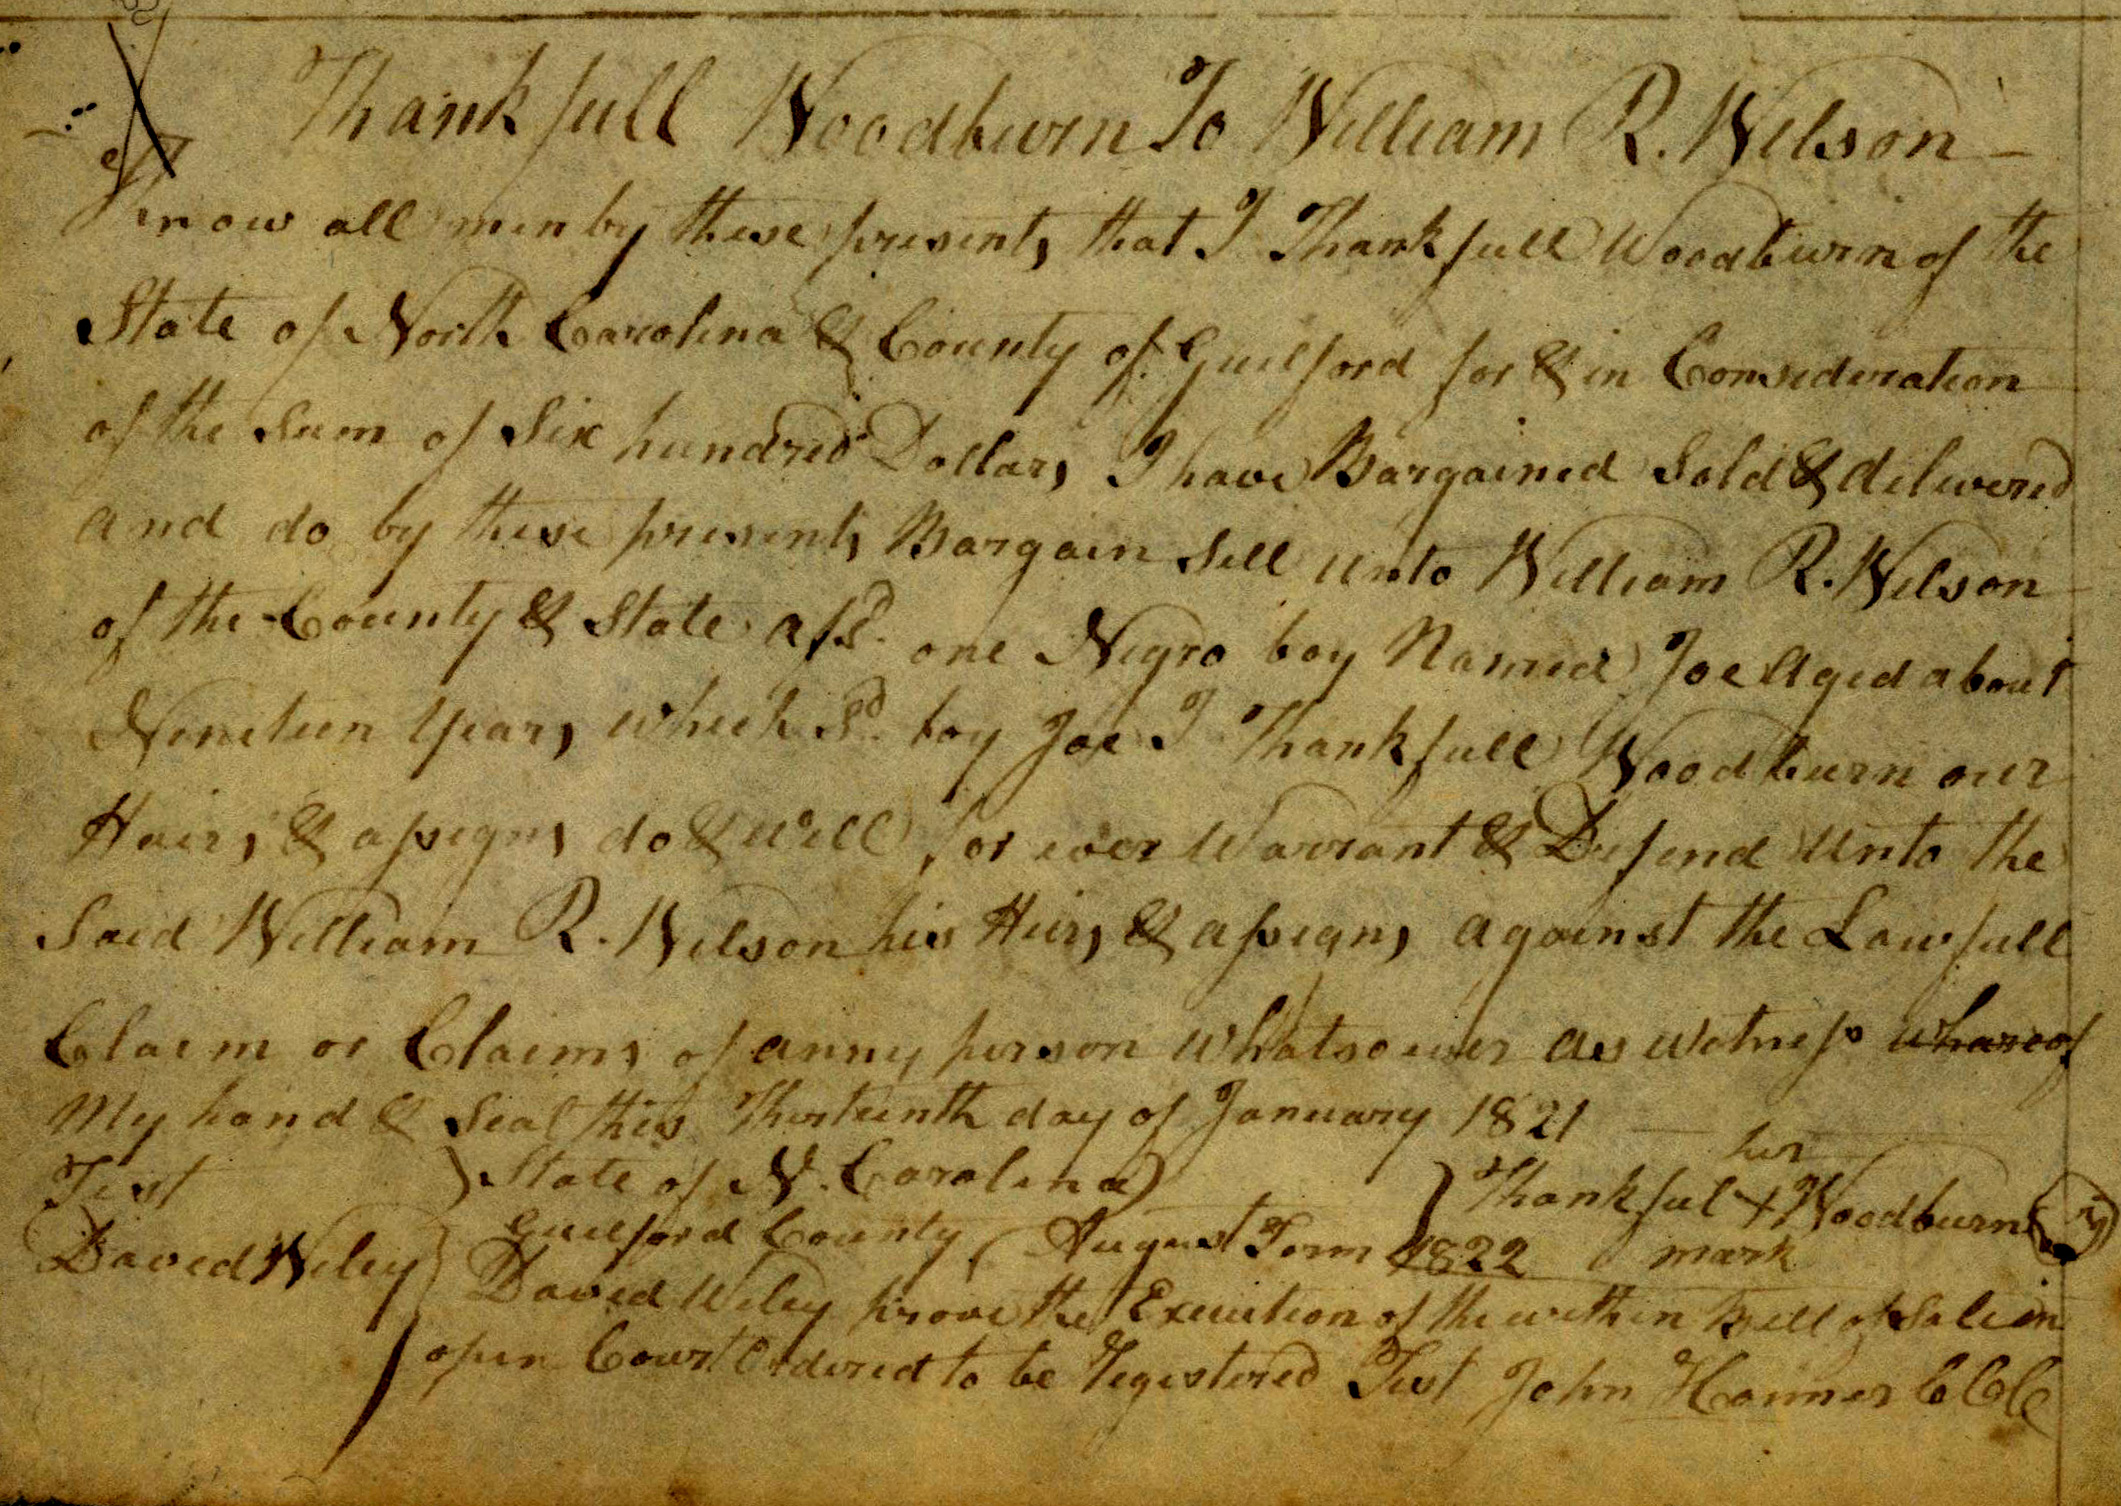 Thankfull Woodburn To William R. Wilson —
Know all men by these presents that I Thankfull Woodburn of the
State of North Carolina & County of Guilford for & in Consideration
of the Sum of Six hundred Dollars I have Bargained Sold & delivered
and do by these presents Bargain Sell unto William R. Wilson
of the County & State afsd. one Negro boy Named Joe Aged about
Nineteen Years which Sd. boy Joe I Thankfull Woodburn our
Hairs & assigns do & will for ever Warrant & Defend unto the
Said William R. Wilson his Heirs & assigns against the Lawfull
Claim or Claims of anny person whatsoever as witness whareof
My hand & Seal this Thirteenth day of January 1821 —
her
Test } State of N. Carolina } Thankful + Woodburn
Guilford County ( August Term 1822 mark
David Wiley } David Wiley prove the Execution of the within Bill of Sale in
open Court Ordered to be registered Test John Hanner CCC